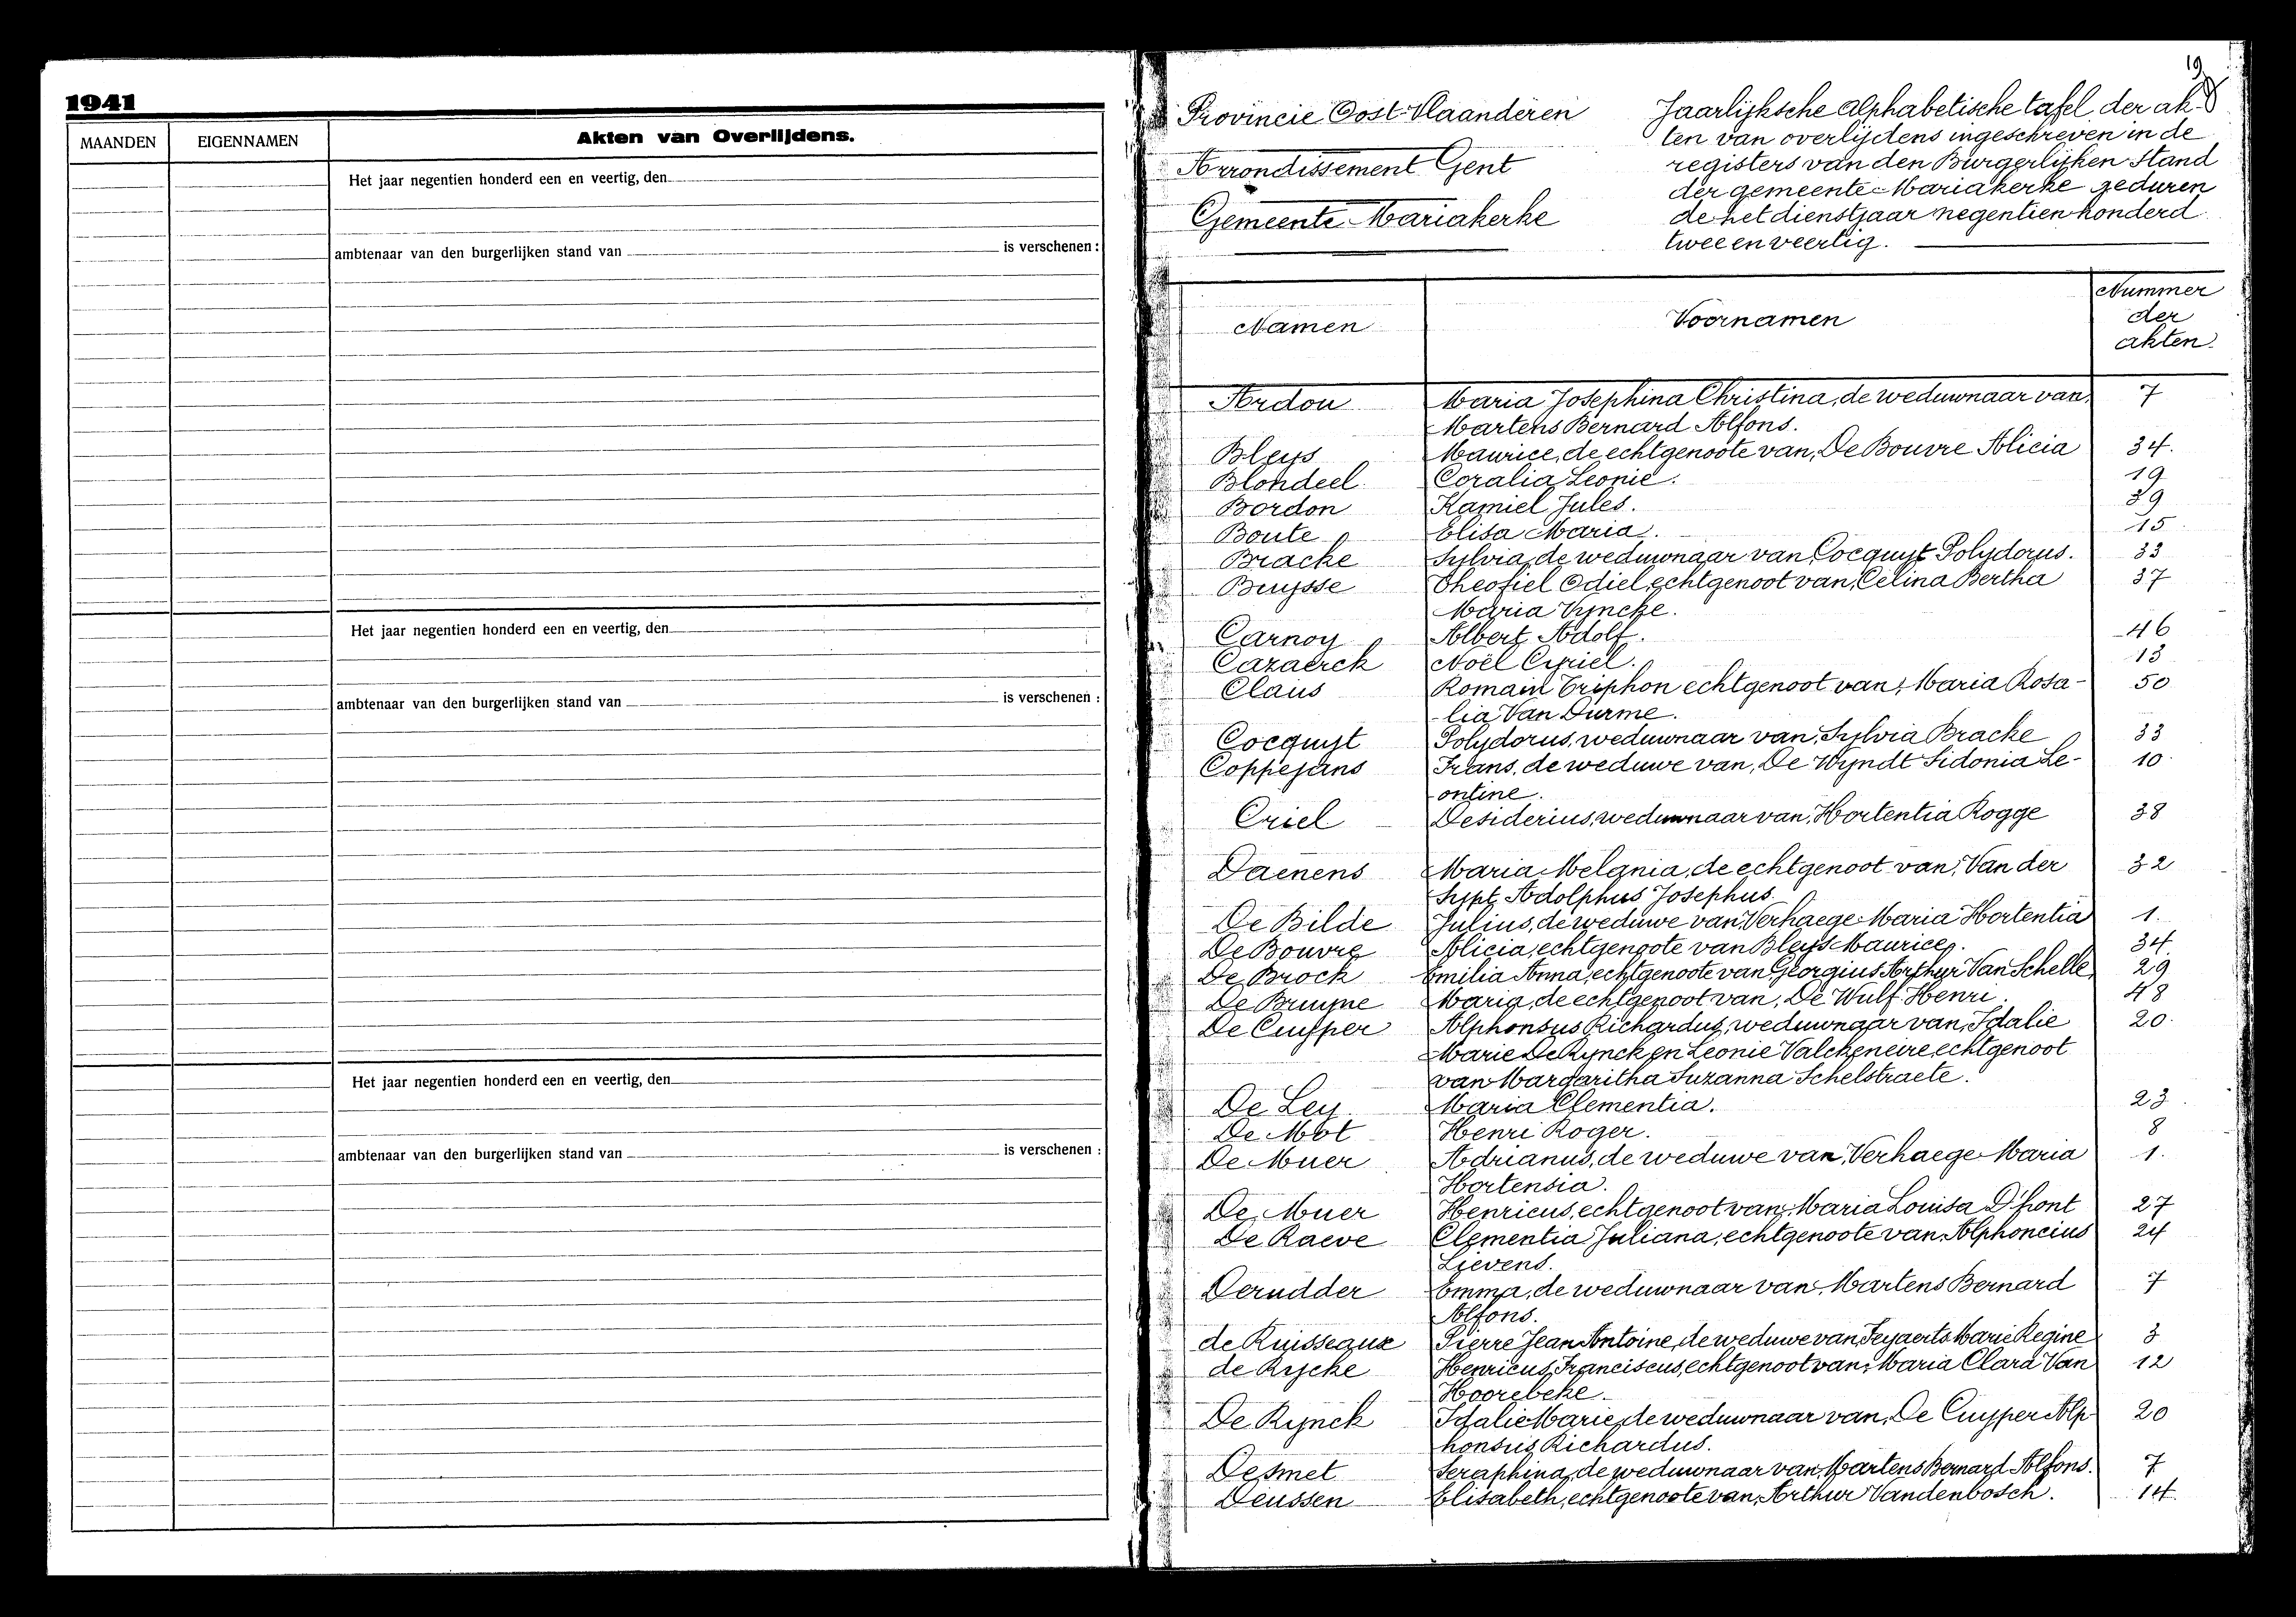 1941
MAANDEN EIGENNAMEN Akten van Overlijdens.
Het jaar negentien honderd een en veertig, den
ambtenaar van den burgerlijken stand van is verschenen :
Het jaar negentien honderd een en veertig, den
ambtenaar van den burgerlijken stand van is verschenen :
Het jaar negentien honderd een en veertig, den
ambtenaar van den burgerlijken stand van is verschenen :
19
Provincie Oost-Vlaanderen
Arrondissement Gent
Gemeente Mariakerke
Jaarlijksche alphabetische tafel der ak-
ten van overlijdens ingeschreven in de
registers van den Burgerlijken Stand
der gemeente Mariakerke geduren
de het dienstjaar negentien honderd
twee en veertig.
Namen Voornamen Nummer
der
akten.
Ardon Maria Josephina Christina, de weduwnaar van, 7
Martens Bernard Alfons.
Bleys Maurice, de echtgenoote van, De Bouvre Alicia 34.
Blondeel Coralia Leonie. 19
Bordon Kamiel Jules. 39
Boute Elisa Maria. 15
Bracke Sylvia, de weduwnaar van Cocquyt Polydorus. 33
Bruysse Theofiel Odiel, echtgenoot van, Celina Bertha 37
Maria Vyncke.
Carnoy Albert Adolf. 46
Cazaerck Noël Cyriel. 13
Claus Romain Triphon echtgenoot van, Maria Rosa- 50
lia Van Durme.
Cocquyt Polydorus, weduwnaar van, Sylvia Bracke 33
Coppejans Frans, de weduwe van, De Wyndt Sidonia Le- 10
ontine.
Criel Desiderius, weduwnaar van, Hortentia Rogge 38
Daenens Maria Melania, de echtgenoot van, Van der 32
Sypt Adolphus Josephus.
De Bilde Julius, de weduwe van, Verhaege Maria Hortentia 1.
De Bouvre Alicia, echtgenoote van Bleys Maurice. 34
De Brock Emilia Anna, echtgenoote van Georgius Arthur Van Schelle 29
De Bruyne Maria, de echtgenoot van, De Wulf Henri. 48
De Cuyper Alphonsus Richardus, weduwnaar van, Idalie 20.
Marie De Rynck en Leonie Valckeneire, echtgenoot
van Margaritha Suzanna Schelstraete.
De Ley Maria Clementia. 23
De Mot Henri Roger. 8
De Muer Adrianus, de weduwe van, Verhaege Maria 1.
Hortensia.
De Muer Henricus, echtgenoot van, Maria Louisa D'hont 27
De Raeve Clementia Juliana, echtgenoote van, Alphoncius 24
Lievens.
Derudder Emma, de weduwnaar van, Martens Bernard 7
Alfons.
de Ruisseaux Pierre Jean Antoine, de weduwe van, Feyaerts Marie Regine 3
de Rycke Henricus Franciscus, echtgenoot van, Maria Clara Van 12
Hoorebeke.
De Rynck Idalie Marie, de weduwnaar van, De Cuyper Alp 20
honsus Richardus.
Desmet Seraphina, de weduwnaar van, Martens Bernard Alfons. 7
Deussen Elisabeth, echtgenoote van, Arthur Vandenbosch. 14.